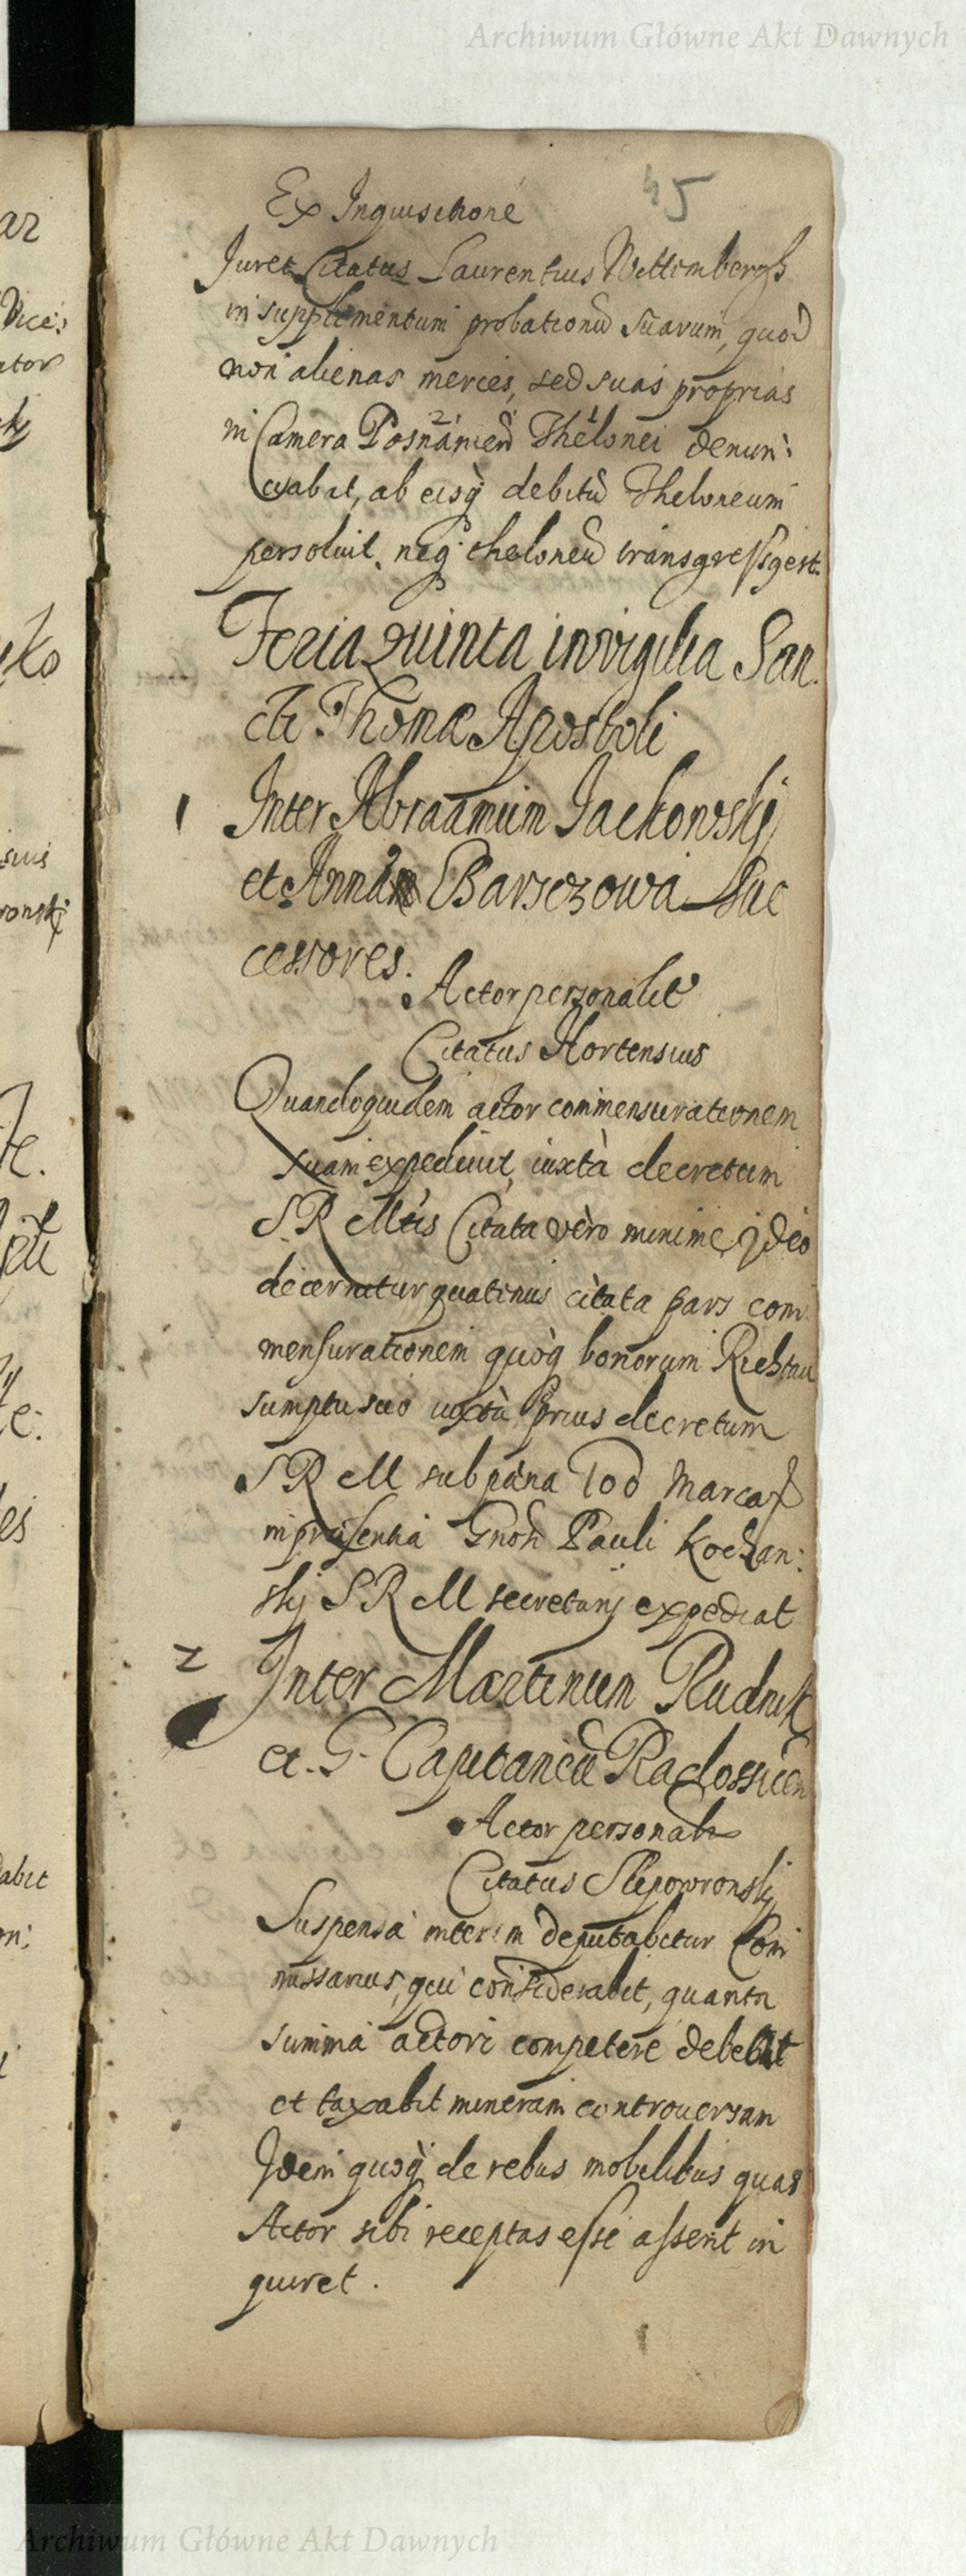 Archiwum Główne Akt Dawnych
45
Ex Inquisitione
Juret Citatus Laurentius Wittembergk
in supplementum probationũ suarum, quod
non alienas merces, sed suas proprias
in Camera Posnanień Thelonei denun:
ciabat, ab eisq debitũ Theloneum
persoluit, neq theloneũ transgressg est.
Feria Quinta in vigilia San
cti Thomæ Apostoli
1 Inter Abraamum Jackowskj
et Annã Barsczowa Suc
cessores.
Actor personalit
Citatus Hortensius
Quandoquidem actor commensurationem
suam expediuit, iuxtà decretum
S. R Mtis Citata vèro minime, Jdeo
decernitur quatinus citata pars com
mensurationem quòq bonorum
sumptu suo iuxtà prius decretum
S R M sub pæna 100 Marcar
in præsentia Gnosi Pauli Kochan:
skj S R M secretarij expediat
2 Inter Martinum Rudnik
et G. Capitaneũ Radossicen
Actor personalr
Citatus Slepowronskj
Suspensa interim deputabitur Com
missarius, qui considerabit, quanta
summa actori competere debebit
et taxabit mineram controuersam
Jdem quoq de rebus mobilibus quas
Actor sibi receptas esse asserit in
quiret.
Archiwum Główne Akt Dawnych